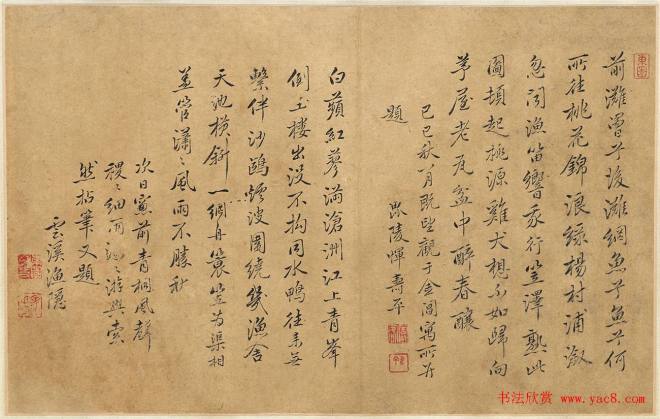 前灘曾子後灘網魚子魚子何
所往桃花錦浪綠楊村浦漵
忽聞漁笛響我行笠澤熟此
圖頓起桃源雞犬想不如歸向
茅屋老瓦盆中醉春釀
己巳秋月既望觀于金閶寓所并
題
毗陵惲壽平
白蘋紅蓼滿滄洲江上青峯
倒玉樓出沒不拘同水鴨往來無
繫伴沙鷗煙波圍繞幾漁舍
天地橫斜一綱舟蓑笠為渠相
蓋管瀟瀟風雨不勝秋
次日窗前青桐風聲
稷稷細雨遊興索
然拈筆又題
雲溪漁隱
书法欣赏
www.yac8.com